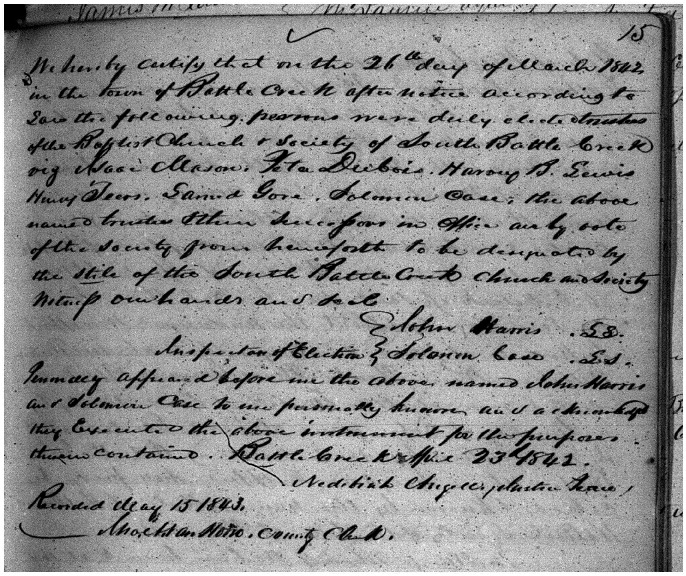 15
We hereby certify that on the 26th day of March 1842
in the town of Battle Creek after notice according to
Law the following persons were duly elected trustees
of the Baptist Church & Society of South Battle Creek
viz Isaac Mason. Peter Dubois. Harvey B. Lewis
Henry Teers. Gamed Gore. Solomon Case; the above
named trustees & their Successors in office are by vote
of the Society from henceforth to be designated by
the stile of the South Battle Creek Church and Society
Witness our hands and seal
John Harris L.S.
Inspectors of Election Solomon Case L.S.
appeared before me the above named John Harris
and Solomon Case to me personally known and acknowledged
they Executed the above instrument for the purposes
therein contained. Battle Creek 23d 1842.
Angell, Justice Peace
Recorded May 15 1843.
County Clerk.